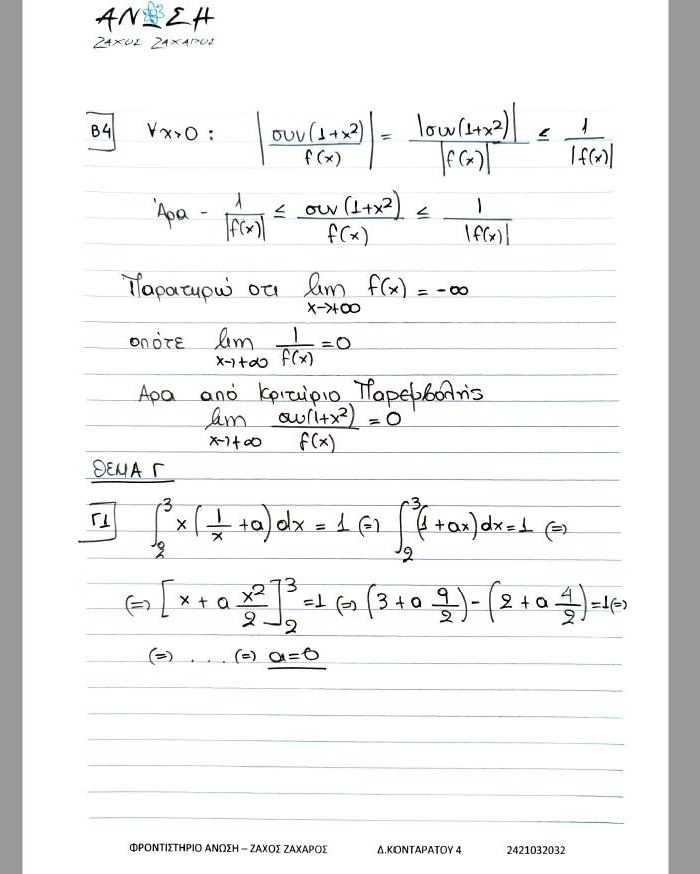 ΑΝΩΣΗ
ΖΑΧΟΣ ΖΑΧΑΡΟΣ
B4 ∀x>0 : |συν(1+x²)/f(x)| = |συν(1+x²)|/|f(x)| ≤ 1/|f(x)|
Άρα - 1/|f(x)| ≤ συν(1+x²)/f(x) ≤ 1/|f(x)|
Παρατηρώ οτι lim x→+∞ f(x) = -∞
οπότε lim x→+∞ 1/f(x) = 0
Αρα από κριτήριο Παρεμβολής
lim x→+∞ συν(1+x²)/f(x) = 0
ΘΕΜΑ Γ
Γ1 ∫₂³ x(1/x + a)dx = 1 (=) ∫₂³ (1 + ax)dx = 1 (=)
(=) [x + a x²/2]₂³ = 1 (=) (3 + a 9/2) - (2 + a 4/2) = 1 (=)
(=) . . . . (=) a=0
ΦΡΟΝΤΙΣΤΗΡΙΟ ΑΝΩΣΗ – ΖΑΧΟΣ ΖΑΧΑΡΟΣ Δ.ΚΟΝΤΑΡΑΤΟΥ 4 2421032032